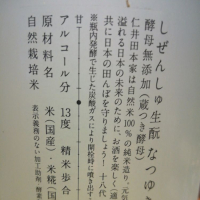 しぜんしゅ生酛 なつゆ
酵母無添加(蔵つき酵母)
仁井田本家は自然米100%の純米造り。天
溢れる日本の未来のために、お酒を楽しく(適
共に日本の田んぼを守りましょう! 十八代
※瓶内発酵で生じた炭酸ガスにより開栓時に噴き出す
甘
アルコール分 13度 精米歩合
原材料名 米(国産)・米糀(国
自然栽培米
表示義務のない加工助剤 酵素